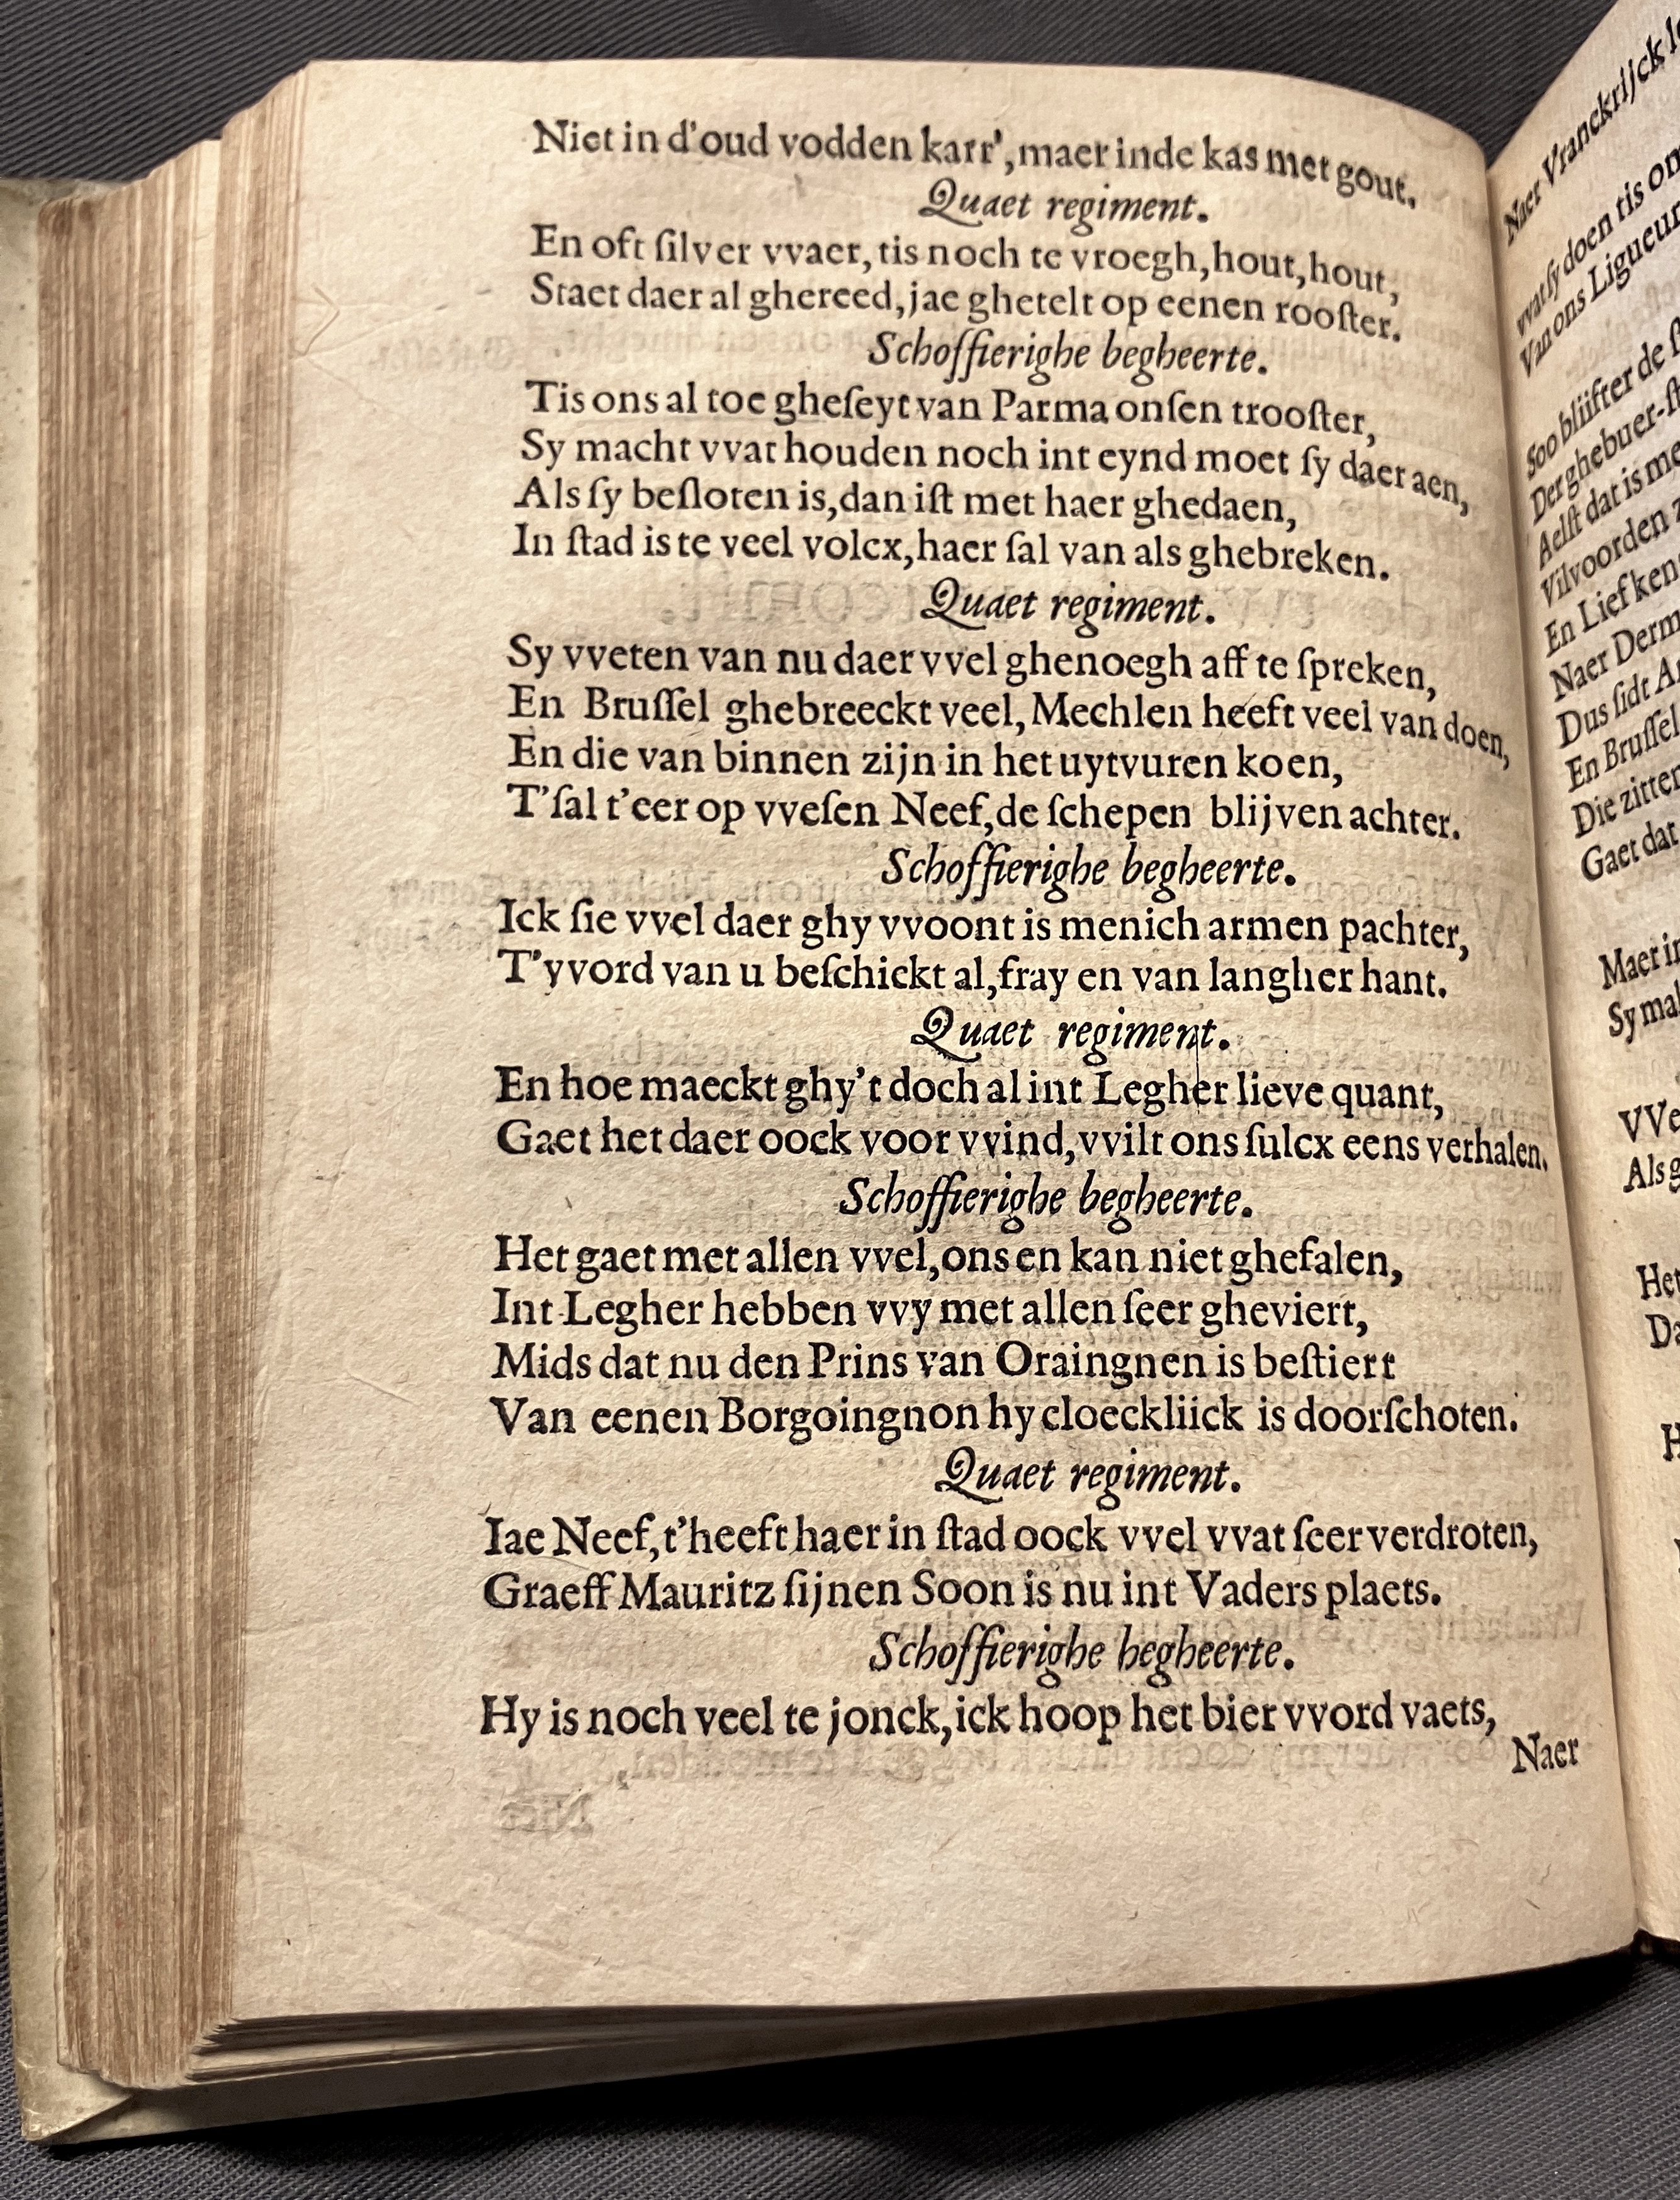 Niet in d'oud vodden karr', maer inde kas met gout.
Quaet regiment.
En oft ſilver vvaer, tis noch te vroegh, hout, hout,
Staet daer al ghereed, jae ghetelt op eenen rooſter.
Schoffierighe begheerte.
Tis ons al toe gheſeyt van Parma onſen trooſter,
Sy macht vvat houden noch int eynd moet ſy daer aen,
Als ſy beſloten is, dan iſt met haer ghedaen,
In ſtad is te veel volcx, haer ſal van als ghebreken.
Quaet regiment.
Sy vveten van nu daer vvel ghenoegh aff te ſpreken,
En Bruſſel ghebreeckt veel, Mechlen heeft veel van doen,
En die van binnen zijn in het uytvuren koen,
T'ſal t'eer op vveſen Neef, de ſchepen blijven achter.
Schoffierighe begheerte.
Ick ſie vvel daer ghy vvoont is menich armen pachter,
T'yvord van u beſchickt al, fray en van langher hant.
Quaet regiment.
En hoe maeckt ghy't doch al int Legher lieve quant,
Gaet het daer oock voor vvind, vvilt ons ſulcx eens verhalen.
Schoffierighe begheerte.
Het gaet met allen vvel, ons en kan niet ghefalen,
Int Legher hebben vvy met allen ſeer gheviert,
Mids dat nu den Prins van Oraingnen is beſtiert
Van eenen Borgoingnon hy cloeckliick is doorſchoten.
Quaet regiment.
Iae Neef, t'heeft haer in ſtad oock vvel vvat ſeer verdroten,
Graeff Mauritz ſijnen Soon is nu int Vaders plaets.
Schoffierighe begheerte.
Hy is noch veel te jonck, ick hoop het bier vvord vaets,
Naer
Naer Vranckrijck
vvat ſy doen tis
Van ons Ligueur
Soo bliifter de
Der ghebuer-
Aelſt dat is
Vilvoorden
En Liefken
Naer
Dus ſidt
En Bruſſel
Die zitten
Gaet dat
Maer
Sy
Als